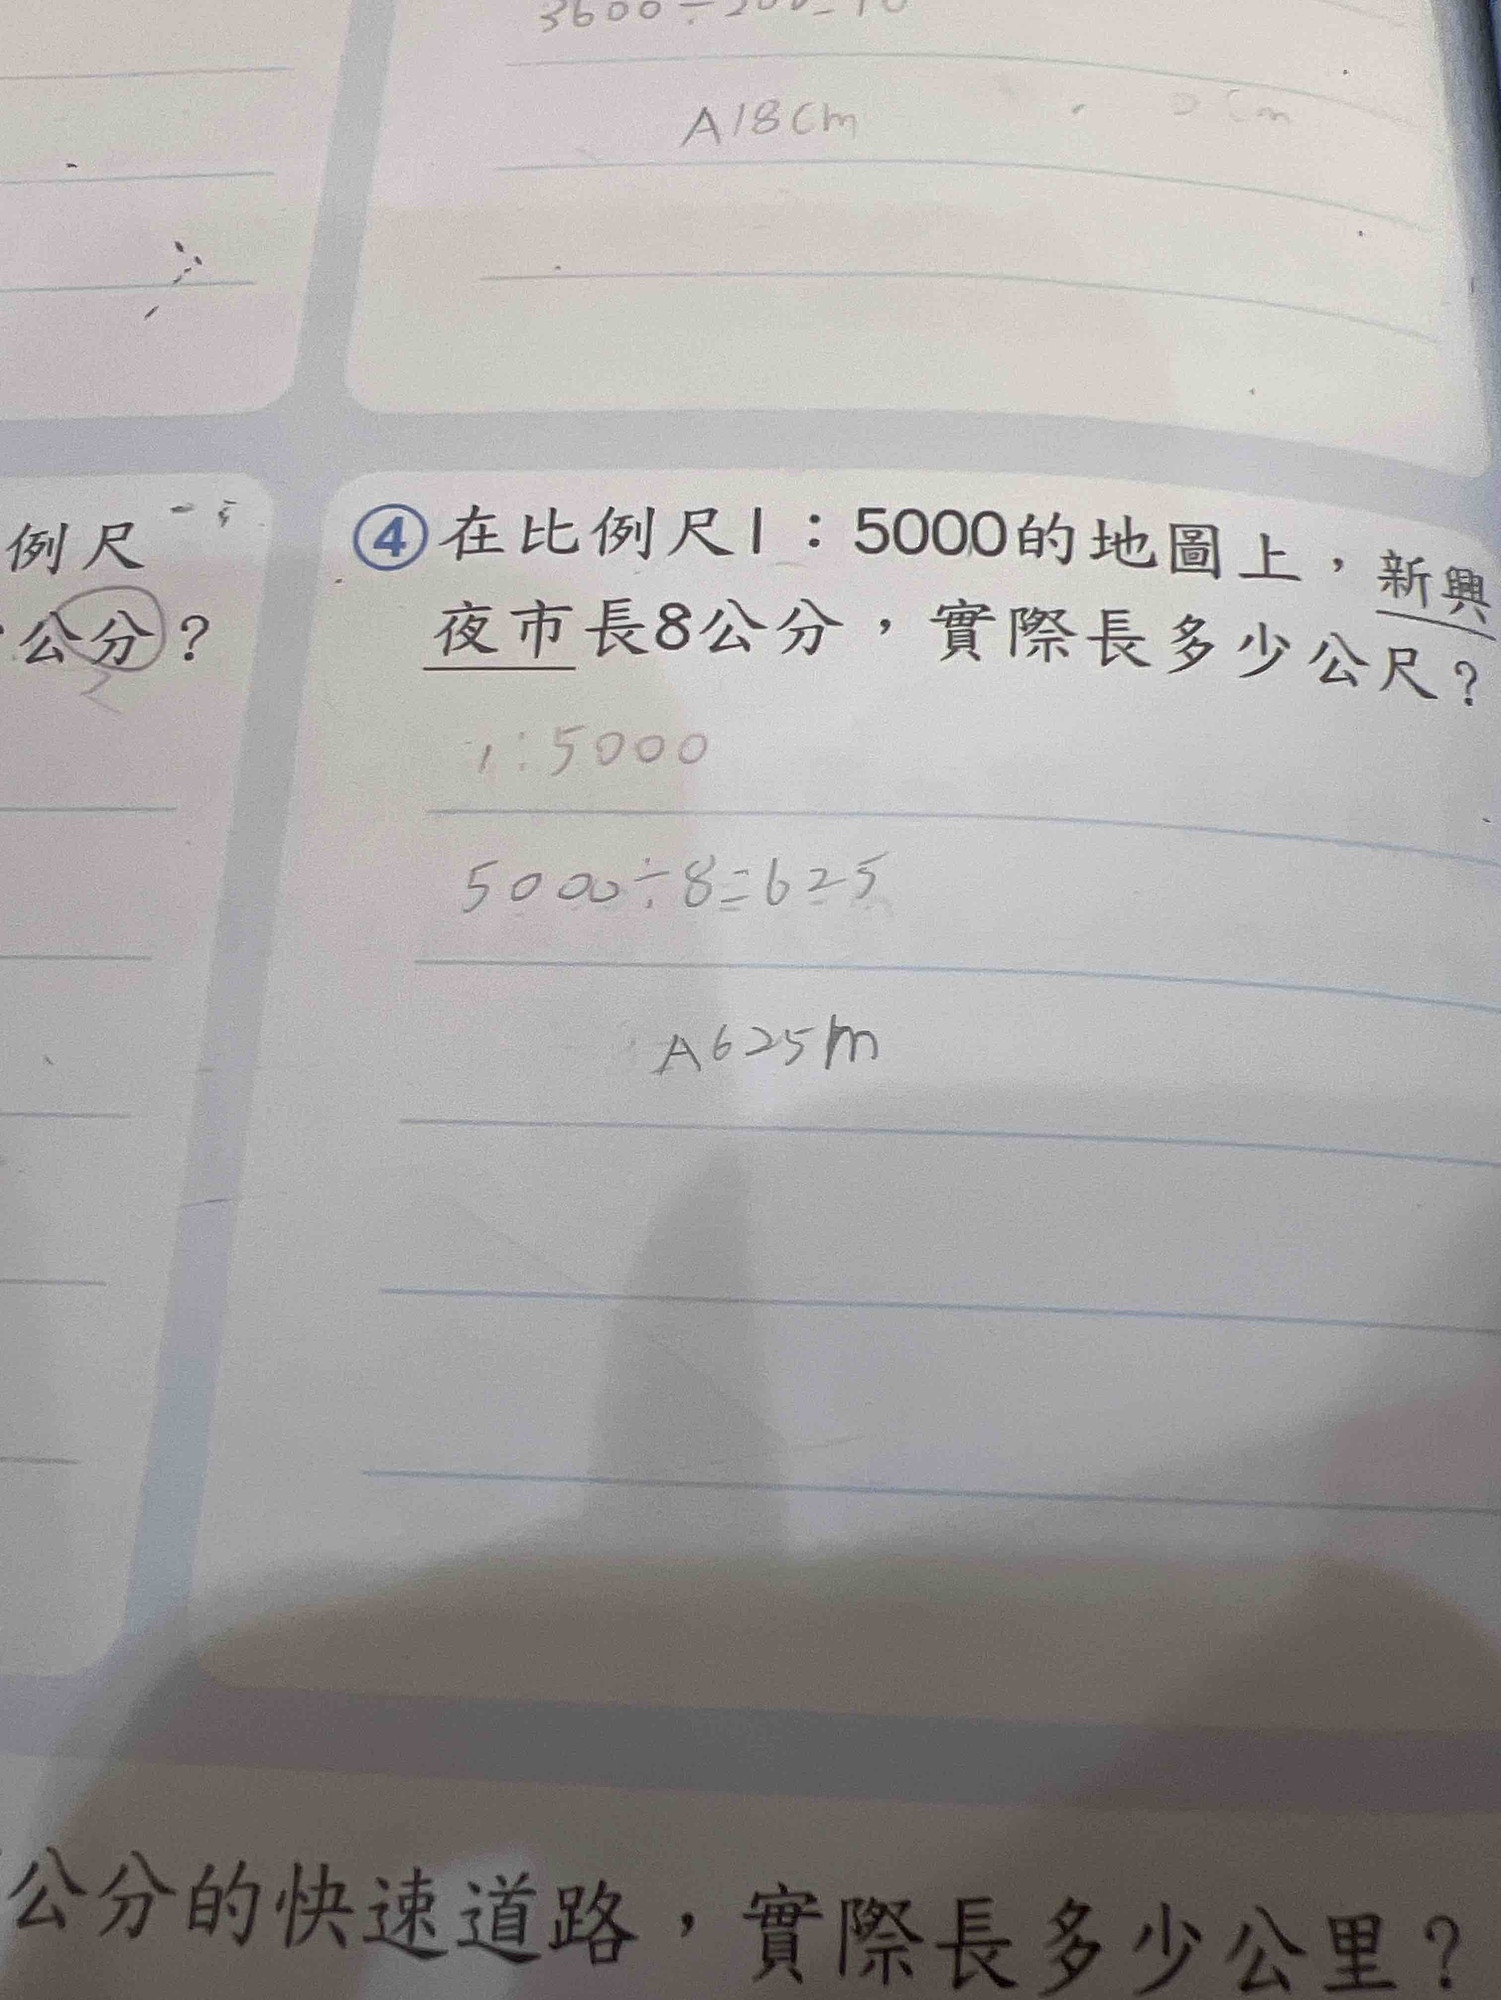 3600÷200=18
A18cm
例尺
公分？
④在比例尺1：5000的地圖上，新興
夜市長8公分，實際長多少公尺？
1:5000
5000÷8=625
A625m
公分的快速道路，實際長多少公里？